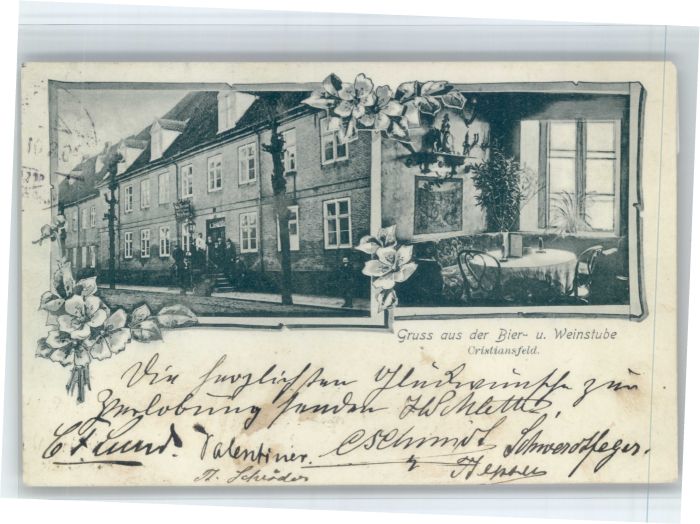 Gruss aus der Bier- u. Weinstube
Cristiansfeld.
Die herzlichsten Glückwünsche zur
Verlobung senden
C. F. Lund. Valentiner. C Schmidt Schwerdtfeger.
A. Schröder